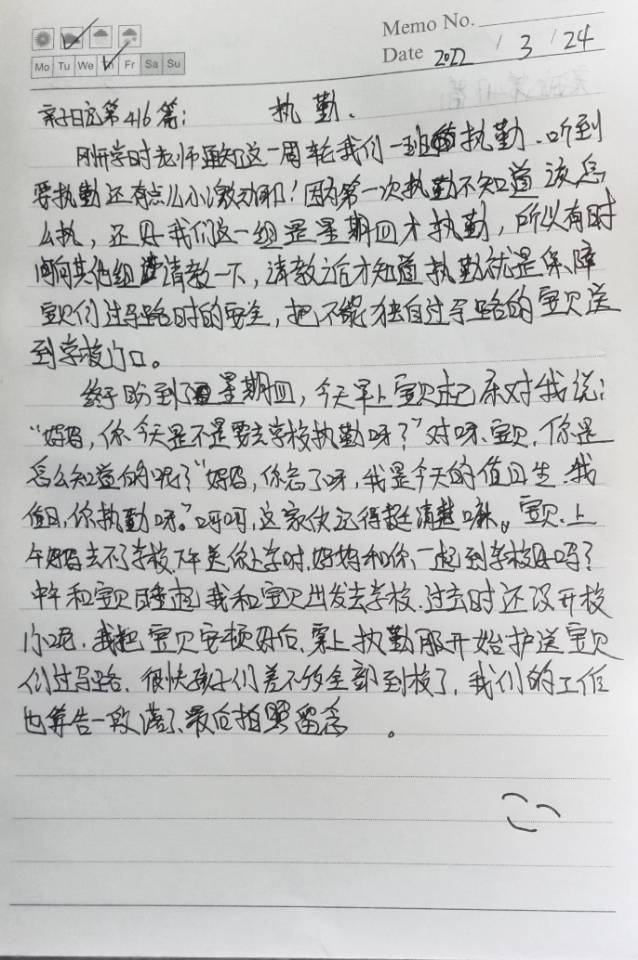 Memo No.
Mo Tu We Th Fr Sa Su
Date 2022 / 3 / 24
亲子日记第416篇: 执勤.
刚开学时老师通知这一周轮我们一班执勤.听到
要执勤还有点儿小小激动耶!因为第一次执勤不知道该怎
么执,还好我们这一组是星期四才执勤,所以有时
间向其他组请教一下,请教之后才知道执勤就是保障
宝贝们过马路时的安全,把不能独自过马路的宝贝送
到学校门口。
终于盼到了星期四,今天早上宝贝起床对我说:
“妈妈,你今天是不是要去学校执勤呀?”对呀、宝贝.你是
怎么知道的呢?”妈妈,你忘了呀,我是今天的值日生.我
值日,你执勤呀。”呵呵,这家伙记得挺清楚嘛。宝贝.上
午妈妈去不了学校.下午送你上学时.妈妈和你一起到学校好吗?
中午和宝贝睡起我和宝贝出发去学校.过去时还没开校
门呢.我把宝贝安顿好后.穿上执勤服开始护送宝贝
们过马路.很快孩子们差不多全部到校了,我们的工作
也算告一段落了.最后拍照留念。